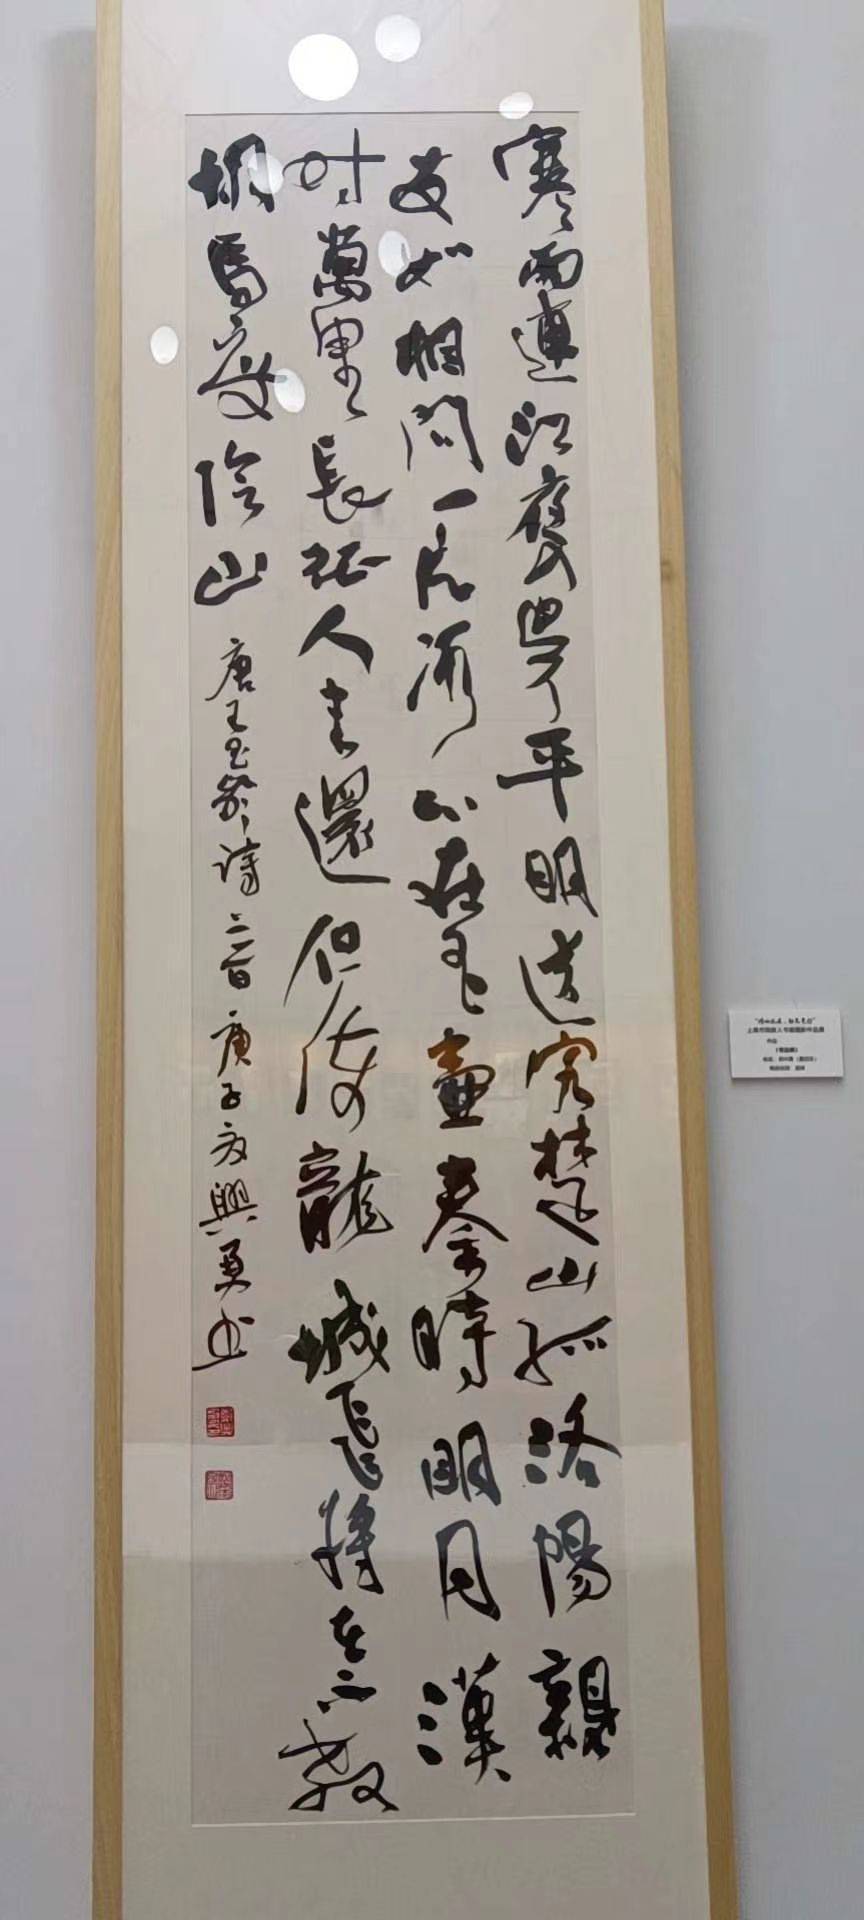 寒雨連江夜入吳平明送客楚山孤洛陽親
友如相問一片冰心在玉壺秦時明月漢
时萬里長征人未還但使龍城飛將在不教
胡馬度陰山 唐王昌齡詩二首 庚子 興勇书
作品